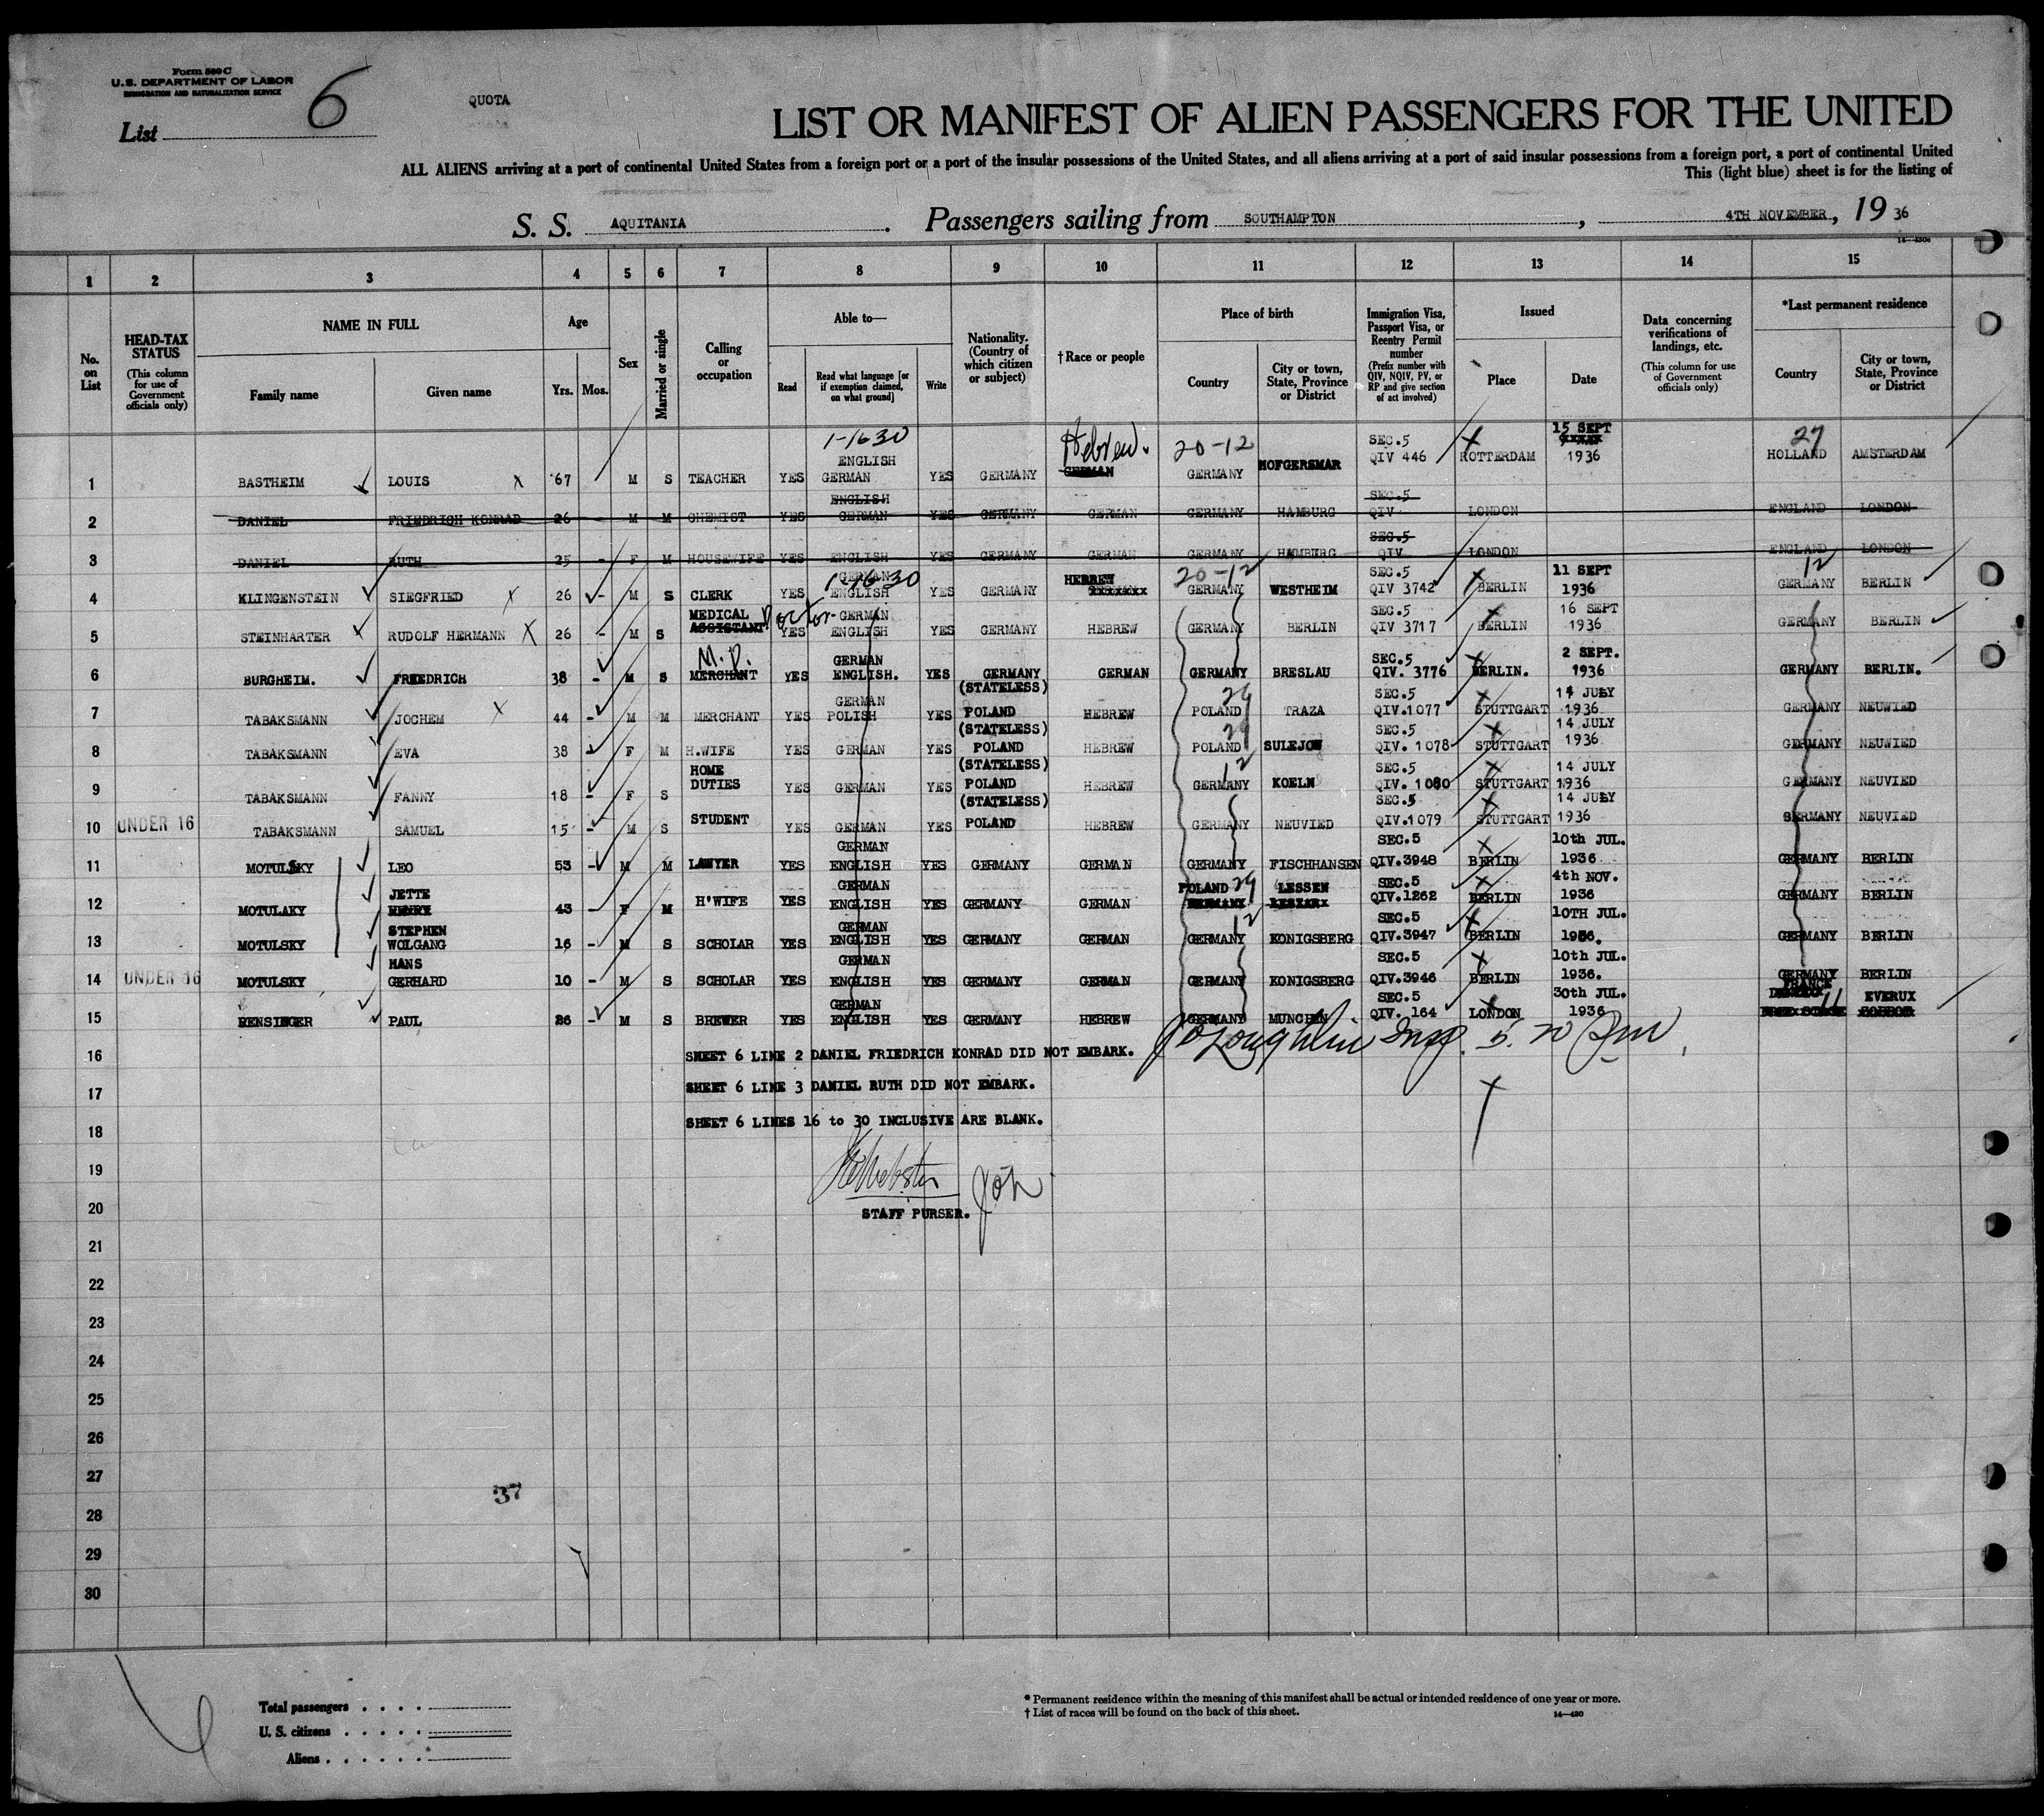 Form 500 C
U.S. DEPARTMENT OF LABOR
IMMIGRATION AND NATURALIZATION SERVICE
List 6
QUOTA
LIST OR MANIFEST OF ALIEN PASSENGERS FOR THE UNITED
ALL ALIENS arriving at a port of continental United States from a foreign port or a port of the insular possessions of the United States, and all aliens arriving at a port of said insular possessions from a foreign port, a port of continental United
This (light blue) sheet is for the listing of
S. S. AQUITANIA. Passengers sailing from SOUTHAMPTON, 4TH NOVEMBER, 19 36
1 2 3 4 5 6 7 8 9 10 11 12 13 14 15
No. on List
HEAD-TAX STATUS (This column for use of Government officials only)
NAME IN FULL
Family name Given name
Age
Yrs. Mos.
Sex
Married or single
Calling or occupation
Able to—
Read Read what language [or if exemption claimed, on what ground] Write
Nationality. (Country of which citizen or subject)
†Race or people
Place of birth
Country City or town, State, Province or District
Immigration Visa, Passport Visa, or Reentry Permit number (Prefix number with QIV, NQIV, PV, or RP and give section of act involved)
Issued
Place Date
Data concerning verifications of landings, etc. (This column for use of Government officials only)
*Last permanent residence
Country City or town, State, Province or District
1-1630 Hebrew. 20-12 27
1 BASTHEIM LOUIS 67 M S TEACHER YES ENGLISH GERMAN YES GERMANY GERMAN GERMANY HOFGERSMAR SEC.5 QIV 446 ROTTERDAM 15 SEPT 1936 HOLLAND AMSTERDAM
2 DANIEL FRIEDRICH KONRAD 26 M M CHEMIST YES ENGLISH GERMAN YES GERMANY GERMAN GERMANY HAMBURG SEC.5 QIV LONDON ENGLAND LONDON
3 DANIEL RUTH 25 - F M HOUSEWIFE YES ENGLISH YES GERMANY GERMAN GERMANY HAMBURG SEC.5 QIV LONDON ENGLAND LONDON
1-1630 20-12 12
4 KLINGENSTEIN SIEGFRIED 26 - M S CLERK YES GERMAN ENGLISH YES GERMANY HEBREW GERMANY WESTHEIM SEC.5 QIV 3742 BERLIN 11 SEPT 1936 GERMANY BERLIN
5 STEINHARTER RUDOLF HERMANN 26 - M S MEDICAL ASSISTANT Doctor- YES GERMAN ENGLISH YES GERMANY HEBREW GERMANY BERLIN SEC.5 QIV 3717 BERLIN 16 SEPT 1936 GERMANY BERLIN
6 BURGHEIM. FRIEDRICH 38 - M S M.D. MERCHANT YES GERMAN ENGLISH. YES GERMANY GERMAN GERMANY BRESLAU SEC.5 QIV. 3776 BERLIN. 2 SEPT. 1936 GERMANY BERLIN.
7 TABAKSMANN JOCHEM 44 - M M MERCHANT YES GERMAN POLISH YES (STATELESS) POLAND HEBREW POLAND 29 TRAZA SEC.5 QIV.1077 STUTTGART 14 JULY 1936 GERMANY NEUWIED
8 TABAKSMANN EVA 38 - F M H.WIFE YES GERMAN YES (STATELESS) POLAND HEBREW POLAND 29 SULEJOW SEC.5 QIV. 1078 STUTTGART 14 JULY 1936 GERMANY NEUWIED
9 TABAKSMANN FANNY 18 - F S HOME DUTIES YES GERMAN YES (STATELESS) POLAND HEBREW GERMANY 12 KOELN SEC.5 QIV. 1080 STUTTGART 14 JULY 1936 GERMANY NEUVIED
10 UNDER 16 TABAKSMANN SAMUEL 15 - M S STUDENT YES GERMAN YES (STATELESS) POLAND HEBREW GERMANY NEUVIED SEC.5 QIV.1079 STUTTGART 14 JULY 1936 GERMANY NEUVIED
11 MOTULSKY LEO 53 - M M LAWYER YES GERMAN ENGLISH YES GERMANY GERMAN GERMANY FISCHHANSEN SEC.5 QIV.3948 BERLIN 10th JUL. 1936 GERMANY BERLIN
12 MOTULAKY JETTE HENRY 43 - F M H'WIFE YES GERMAN ENGLISH YES GERMANY GERMAN POLAND 29 GERMANY LESSEN SEC.5 QIV.1262 BERLIN 4th NOV. 1936 GERMANY BERLIN
13 MOTULSKY STEPHEN WOLGANG 16 - M S SCHOLAR YES GERMAN ENGLISH YES GERMANY GERMAN GERMANY 12 KONIGSBERG SEC.5 QIV.3947 BERLIN 10TH JUL. 1936. GERMANY BERLIN
14 UNDER 16 MOTULSKY HANS GERHARD 10 - M S SCHOLAR YES GERMAN ENGLISH YES GERMANY GERMAN GERMANY KONIGSBERG SEC.5 QIV.3946 BERLIN 10th JUL. 1936. GERMANY BERLIN
15 RENSINGER PAUL 26 - M S BREWER YES GERMAN ENGLISH YES GERMANY HEBREW GERMANY MUNCHEN SEC.5 QIV. 164 LONDON 30th JUL. 1936 FRANCE 11 EVERUX
16 SHEET 6 LINE 2 DANIEL FRIEDRICH KONRAD DID NOT EMBARK. JO'Loughlin Insp. 5.
17 SHEET 6 LINE 3 DANIEL RUTH DID NOT EMBARK.
18 SHEET 6 LINES 16 to 30 INCLUSIVE ARE BLANK.
19
20 STAFF PURSER.
21
22
23
24
25
26
27
37
28
29
30
Total passengers . . . .
U. S. citizens . . . . .
Aliens . . . . . .
* Permanent residence within the meaning of this manifest shall be actual or intended residence of one year or more.
† List of races will be found on the back of this sheet.
14—430